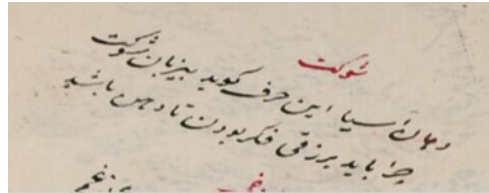 شوکت
دهان آسیا این حرف کوید بیزبان شوکت
چرا باید برزقی فکر بودن تا دهن باشد